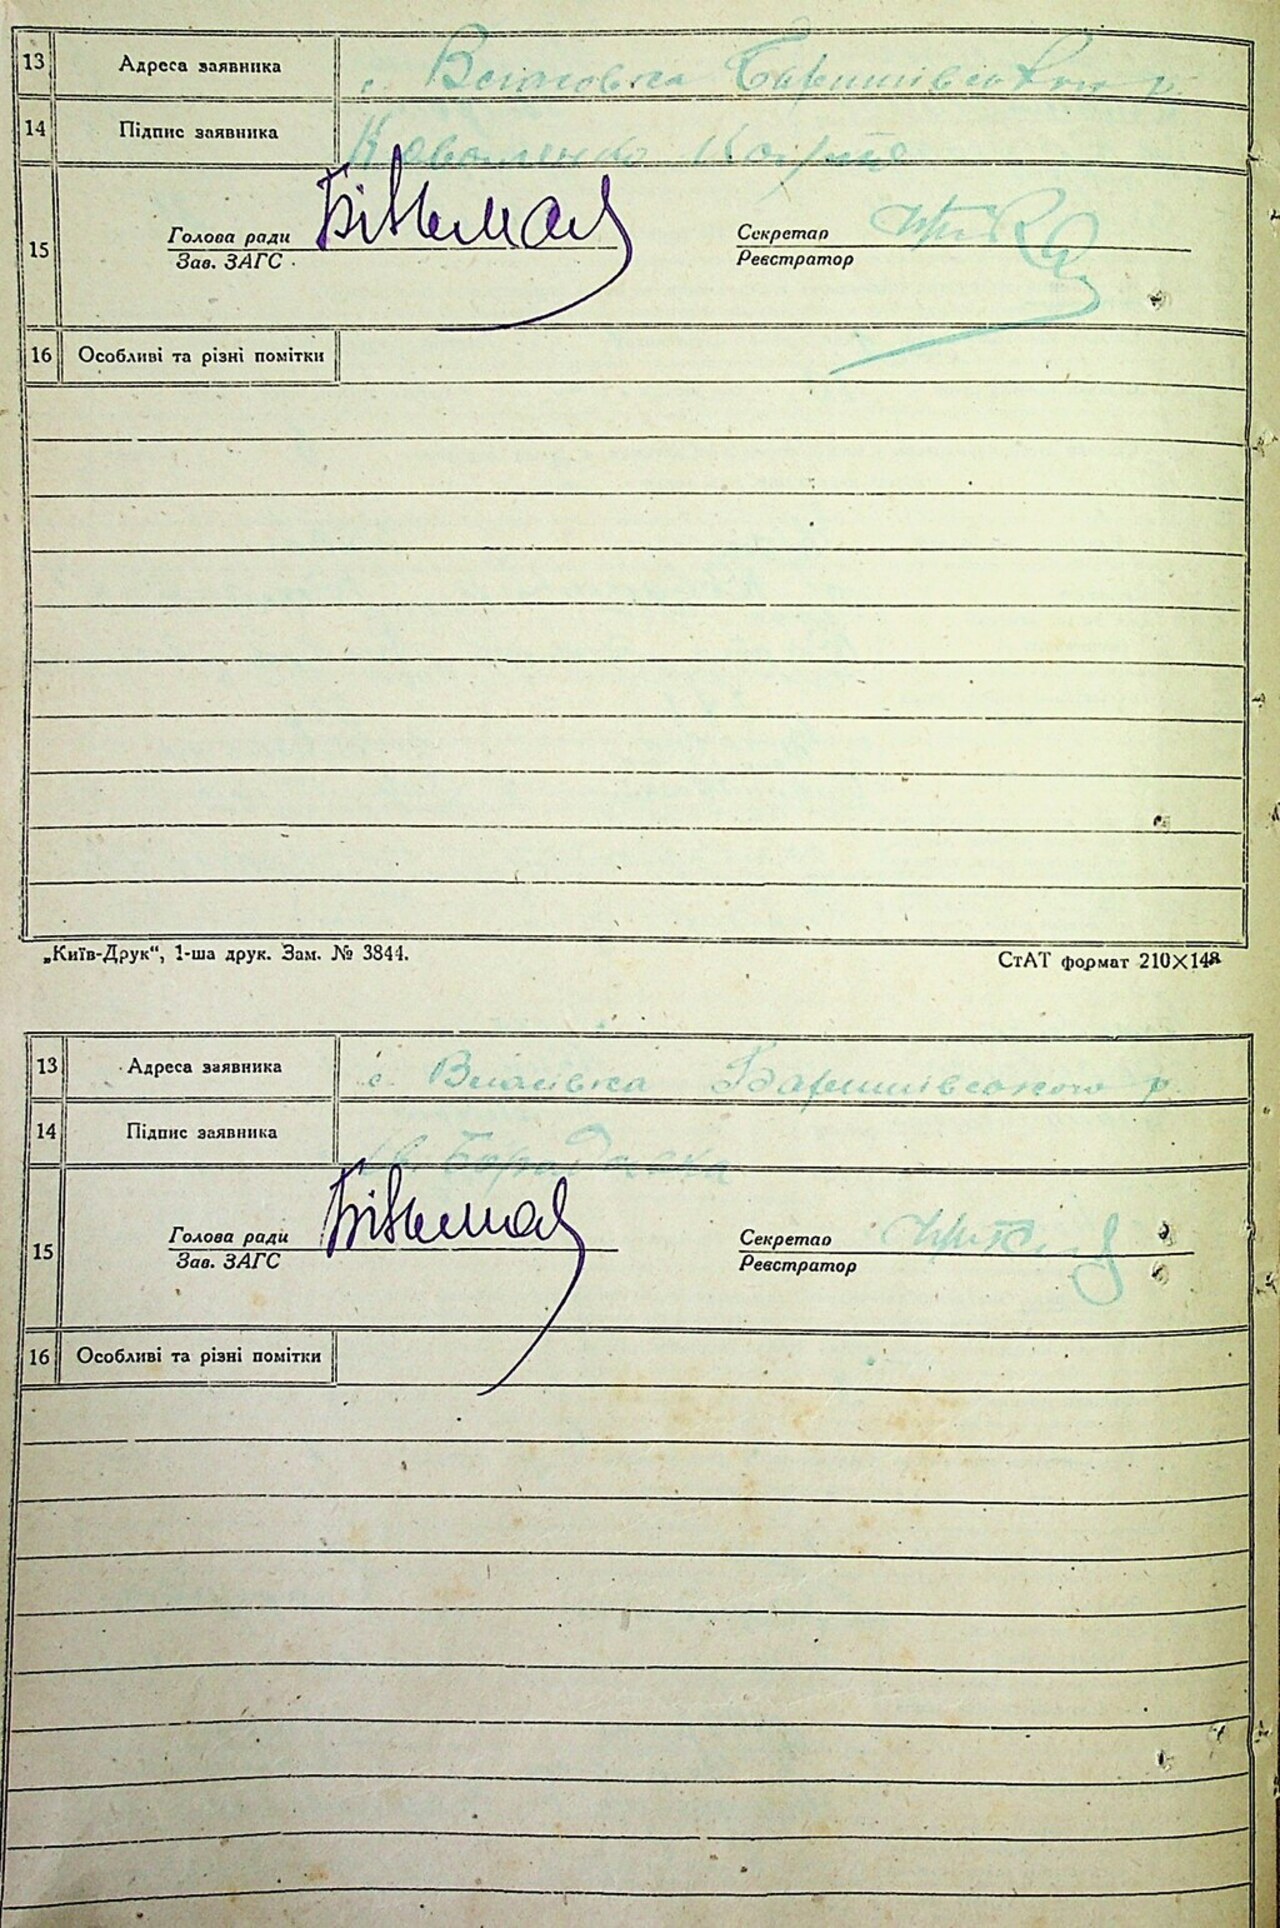 13 Адреса заявника с. Власовка Баришівського р.
14 Підпис заявника Коваленко
15 Голова ради Секретар
Зав. ЗАГС Реєстратор
16 Особливі та різні помітки
„Київ-Друк“, 1-ша друк. Зам. № 3844. СтАТ формат 210×148
13 Адреса заявника с. Власівка Баришівського р.
14 Підпис заявника
15 Голова ради Секретар
Зав. ЗАГС Реєстратор
16 Особливі та різні помітки